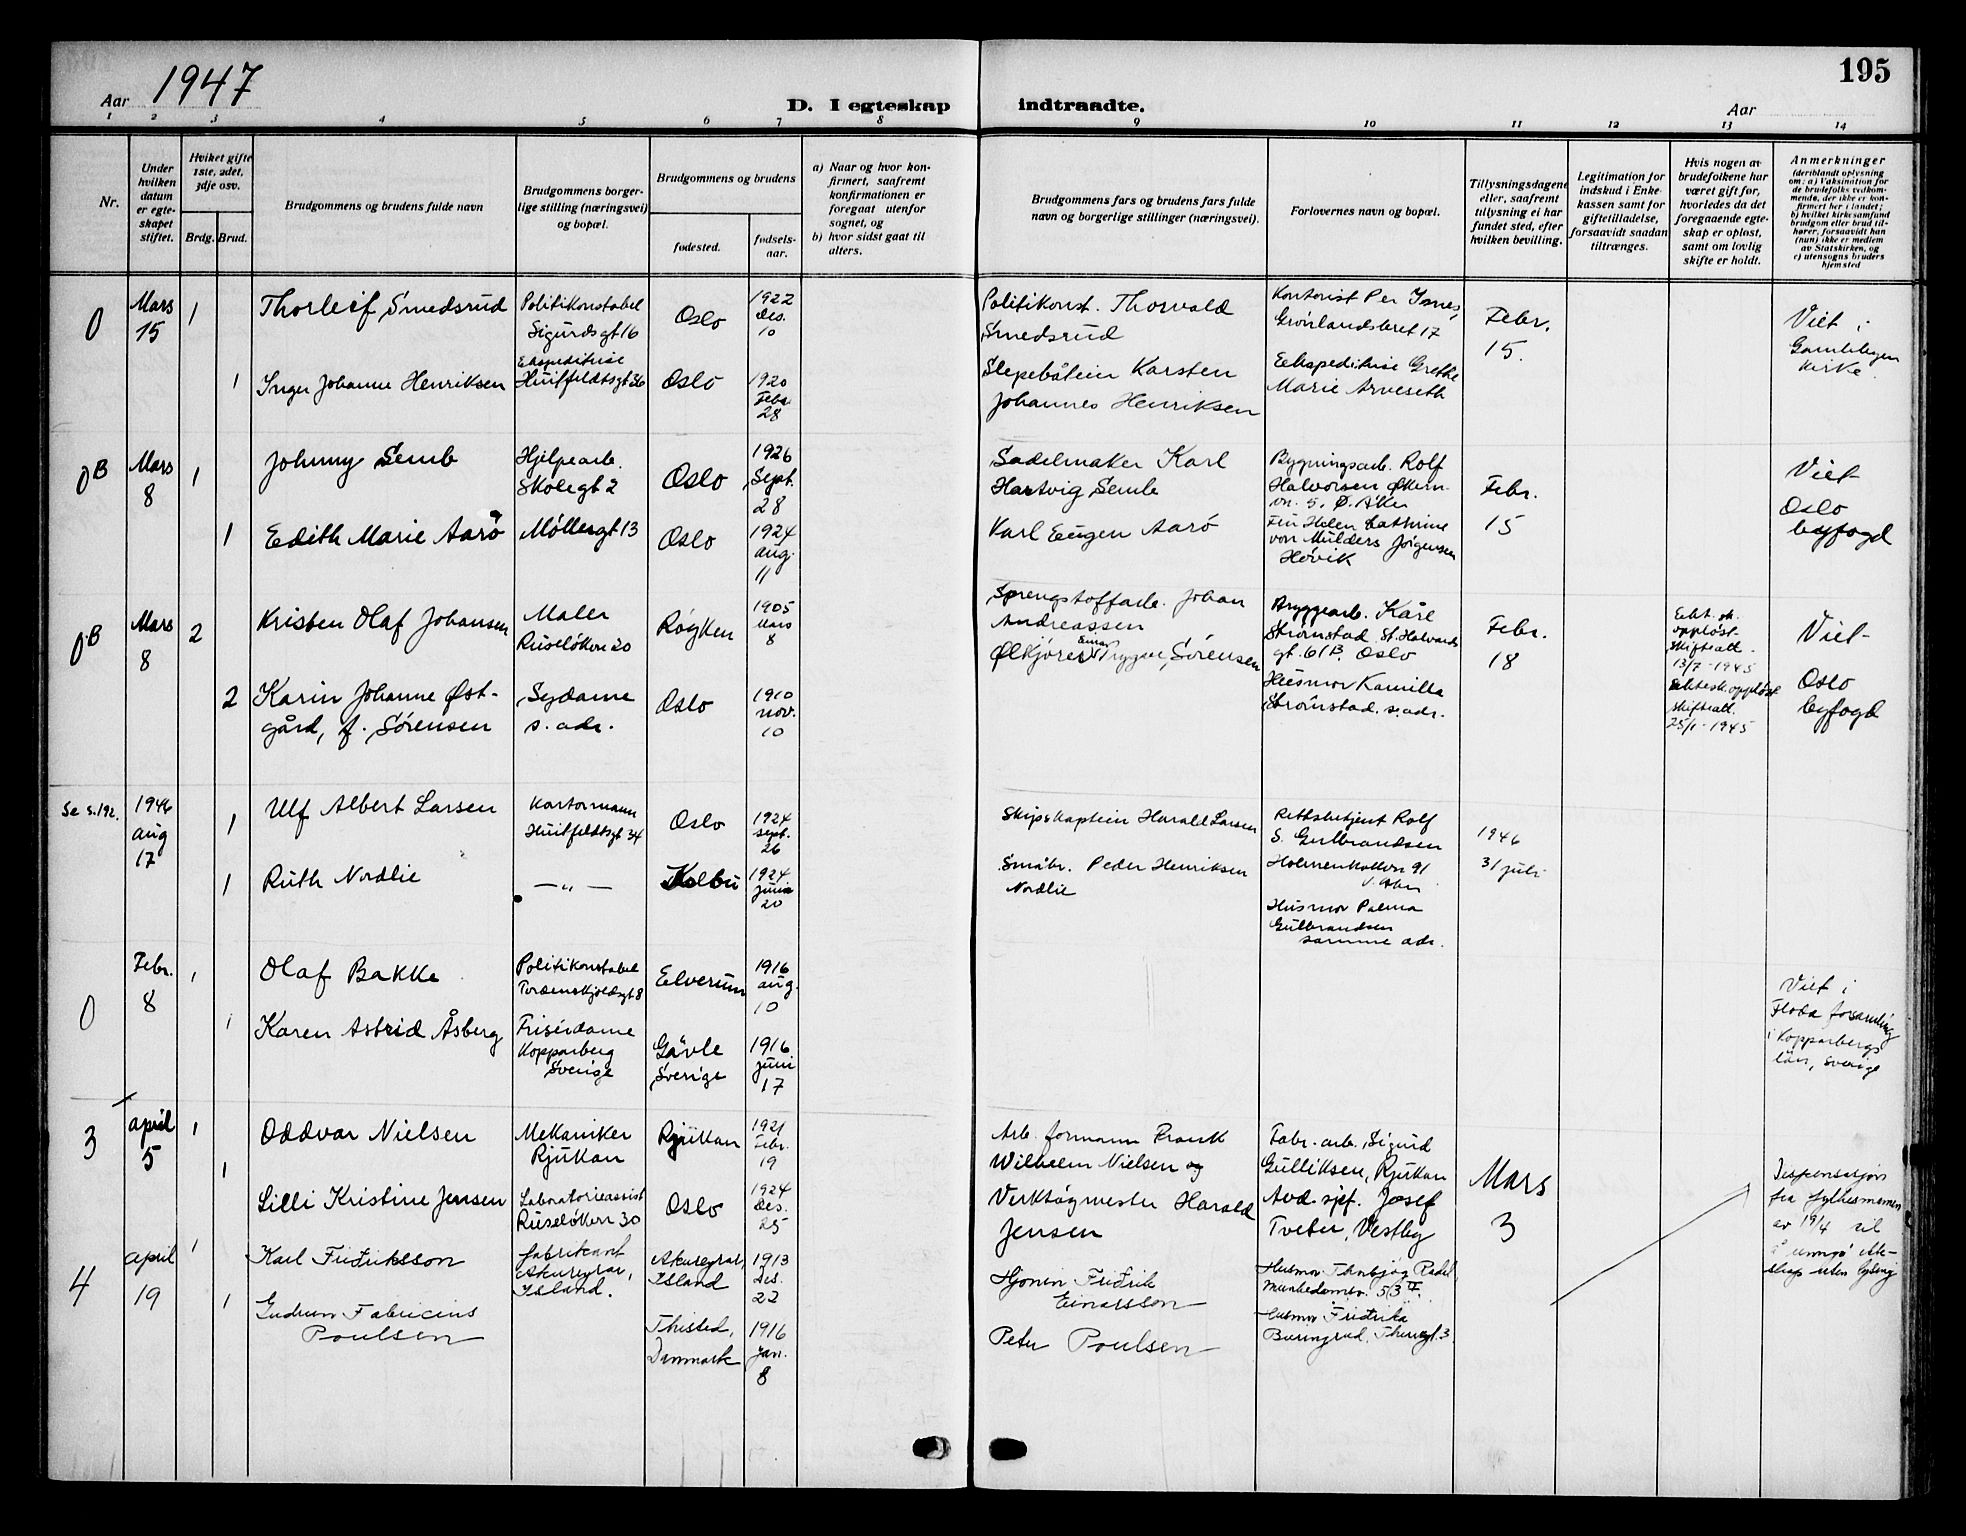 Aar 1947
D. I egteskap indtraadte.
Aar
195
1 2 3 4 5 6 7 8 9 10 11 12 13 14
Nr.
Under hvilken datum er egteskapet stiftet.
Hvilket gifte 1ste, 2det, 3dje osv.
Brdg. Brud.
Brudgommens og brudens fulde navn
Brudgommens borgerlige stilling (næringsvei) og bopæl.
Brudgommens og brudens
fødested.
fødselsaar.
a) Naar og hvor konfirmert, saafremt konfirmationen er foregaat utenfor sognet, og
b) hvor sidst gaat til alters.
Brudgommens fars og brudens fars fulde navn og borgerlige stillinger (næringsvei).
Forlovernes navn og bopæl.
Tillysningsdagene eller, saafremt tillysning ei har fundet sted, efter hvilken bevilling.
Legitimation for indskud i Enkekassen samt for giftetilladelse, forsaavidt saadan tiltrænges.
Hvis nogen av brudefolkene har været gift før, hvorledes da det foregaaende egteskap er opløst, samt om lovlig skifte er holdt.
Anmerkninger (deriblandt oplysning om: a) Vaksination for de brudefolks vedkommende, der ikke er konfirmert her i landet; b) hvilket kirkesamfund brudgom eller brud tilhører, forsaavidt han (hun) ikke er medlem av Statskirken, og c) utensogns bruders hjemsted
0
Mars 15
1
Thorleif Smedsrud
Politikonstabel
Sigurdsgt 16
Oslo
1922 des. 10
Politikonst. Thorvald
Smedsrud
Kontorist Per Ysnes,
Grønlandsleret 17
Febr. 15.
Viet i
Gamlebyen
kirke.
1
Inger Johanne Henriksen
Ekspeditrise
Huitfeldtsgt 36
Oslo
1920 Febr. 28
Karsten
Johannes Henriksen
Eekspeditrise Grethe
Marie Arveseth
0B
Mars 8
1
Johnny Semb
Hjelpearb.
Skolegt 2
Oslo
1926 Sept. 28
Sadelmaker Karl
Hartvig Semb
Bygningsarb. Rolf
Halvorsen Økern-
vn. 5. Ø. Aker
Febr. 15
Viet
Oslo
byfogd
1
Edith Marie Aarø
Møllergt 13
Oslo
1924 aug. 11
Karl Eugen Aarø
Fru Helen Cathrine
von Mulders Jørgensen
Høvik
0B
Mars 8
2
Kristen Olaf Johansen
Maler
Ruseløkvn 20
Røyken
1905 Mars 8
Sprengstoffarb. Johan
Andreassen
Bryggearb. Kåre
Strømstad St. Halvards
gt. 61B. Oslo
Febr. 18
Ekt. sk.
oppløst
skifteatt.
13/7-1945
Viet
Oslo
byfogd
2
Karin Johanne Øst-
gård, f. Sørensen
Sydame
s. adr.
Oslo
1910 nov. 10
Ølkjører Trygve Sørensen
Husmor Kamilla
Strømstad. s. adr.
Ekteskoppløst
skifteatt.
25/1-1945
Se s. 192.
1946 aug 17
1
Ulf Albert Larsen
Kontormann
Huitfeldtsgt 34
Oslo
1924 sept. 26
Skipskaptein Harald Larsen
Rettsbetjent Rolf
S. Gulbrandsen
Holmenkollvn 91
V. Aker
1946
31 juli
1
Ruth Nordlie
— „ —
Kolbu
1924 juni 20
Småbr. Peder Henriksen
Nordlie
Husmor Palma
Gulbrandsen
samme adr.
0
Febr. 8
1
Olaf Bakke
Politikonstabel
Tordenskjoldsgt 8
Elverum
1916 aug. 10
Viet i
Floda forsamling
i Kopparbergs
län, Sverige
1
Karen Astrid Åsberg
Frisørdame
Kopparberg
Sverige
Gävle
Sverige
1916 juni 17
3
april 5
1
Oddvar Nielsen
Mekaniker
Rjukan
Rjukan
1921 Febr. 19
Arb. formann Frank
Wilhelm Nielsen og
Fabr. arb. Sigurd
Gulliksen, Rjukan
Mars 3
1
Lilli Kristine Jensen
Laboratorieassist
Ruseløkvn 30
Oslo
1924 Des. 25
Verktøymester Harald
Jensen
Avd. sjef. Josef
Tveter, Vestby
4
april 19
1
Karl Fridriksson
fabrikant
Akureyrar,
Island.
Akureyrar,
Island
1913 Des. 22
Hjonin Fridrik
Einarsson
Husmor Thorbjøg
Munkedamsv. 53 IV.
Dispensasjon
fra fylkesmannen
av 19/4 til
å inngå ekte-
skap uten lysing
1
Gudrun Fabricius
Poulsen
Thisted,
Danmark
1916 Jan. 8
Peter Poulsen
Husmor Fridrika